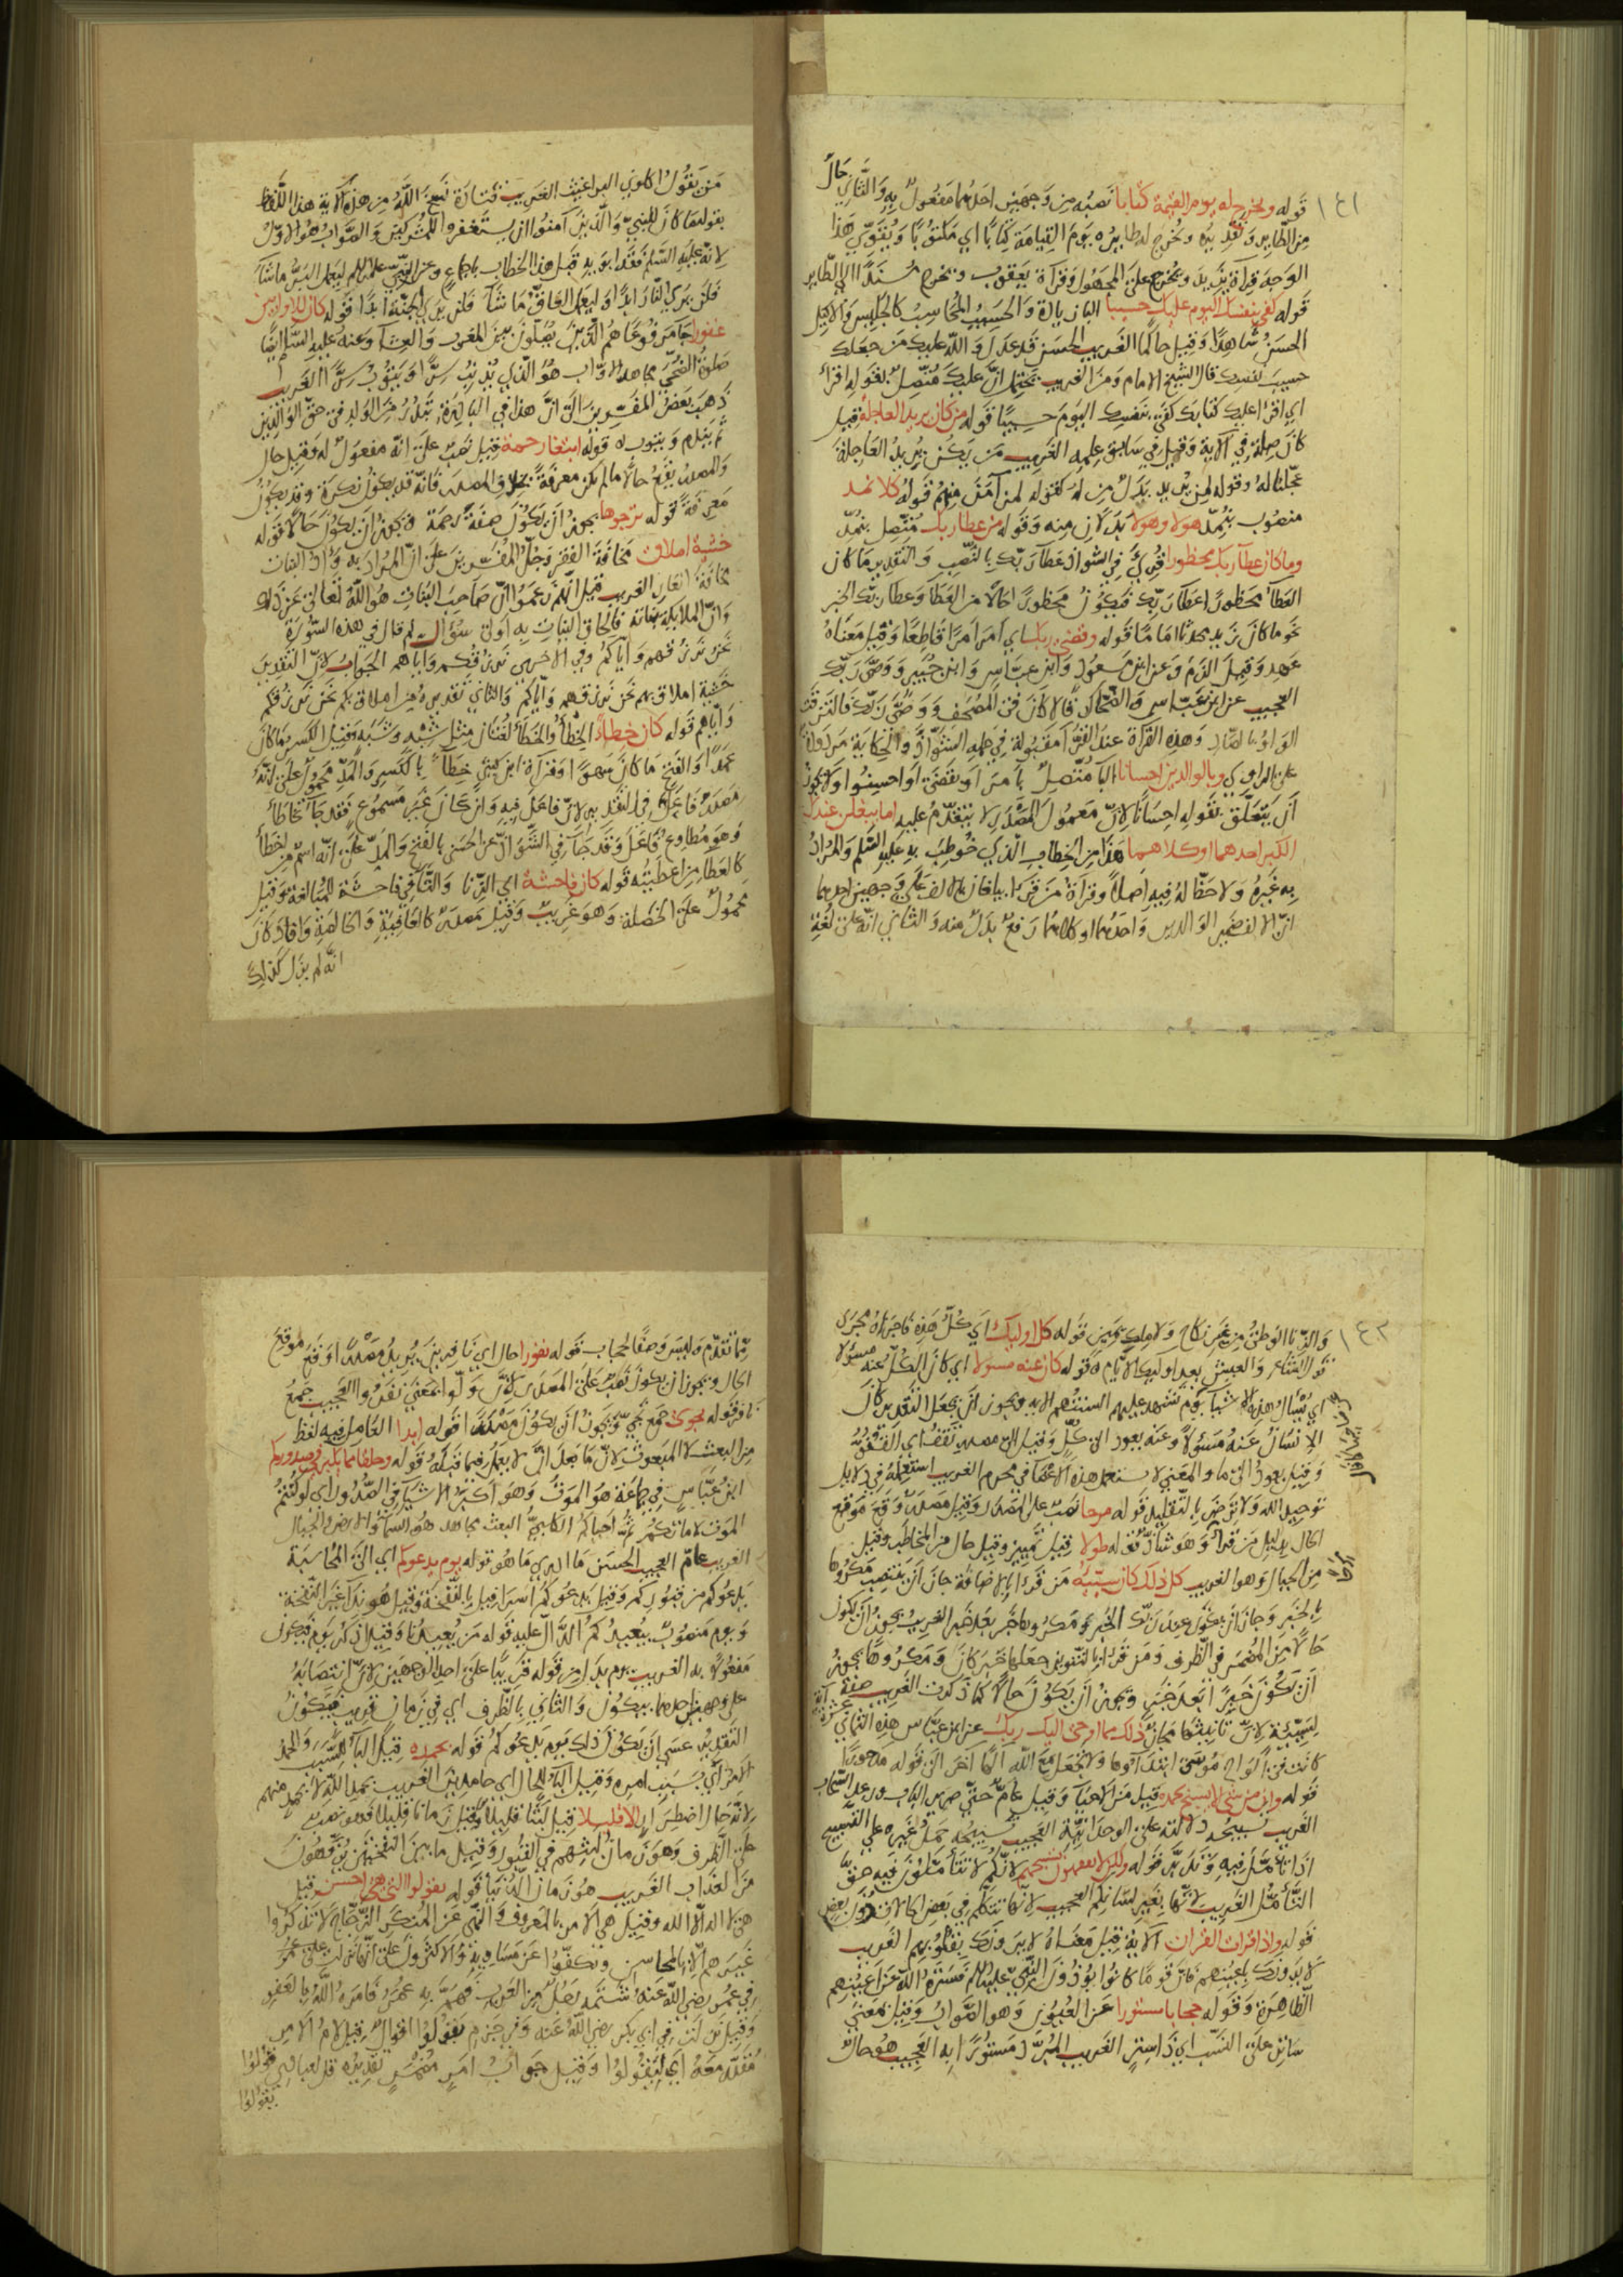 ١٤١
قوله ويخرج له يوم القيمة كتابا نصبه من وجهين احدهما مفعول به والثاني حال
من الطاير وتقديره ونخرج له طايره يوم القيامة كتابا اي مكتوبا ويقوي هذا
الوجه قرآة يزيد ويخرج على المجهول وقرآة يعقوب ويخرج مسندا الى الطاير
قوله كفى بنفسك اليوم عليك حسيبا الباء زيادة والحسيب المحاسب كالجليس والاكيل
الحسن شاهدا وقيل حاكما الغريب الحسن قد عدل والله عليك من جعلك
حسيب نفسك قال الشيخ الامام ومن الغريب يحتمل ان عليك متصل بقوله اقرأ
اي اقرأ عليك كتابك كفى بنفسك اليوم حسيبا قوله من كان يريد العاجلة قيل
كان صلة في الآية وقيل في سابق علمه الغريب من يكن يريد العاجلة
عجلنا له وقوله لمن نريد بدل من له كقوله لمن آمن منهم قوله كلا نمد
منصوب بنمد هولا وهولا بدلان منه وقوله من عطا ربك متصل بنمد
وما كان عطآ ربك محظورا قرئ في الشواذ عطآ ربك بالنصب والتقدير ما كان
العطآ محظورا عطآ ربك فيكون محظورا حالا من العطآ وعطا ربك الخبر
نحو ما كان زيد محدثا اماما قوله وقضى ربك اي امر امرا قاطعا وقيل معناه
عهد وقيل الزم وعن ابن مسعود وابن عباس وابن جبير ووصى ربك
العجيب عن ابن عباس والضحاك قالا كان في المصحف ووصى ربك فالتزقت
الواو بالصاد وهذه القرآة عند القرآ مقبولة في جملة الشواذ والحكاية مردودة
على الراوي وبالوالدين احسانا البآ متصل بامر او بقضى او احسنوا ولا يجوز
ان يتعلق بقوله احسانا لان معمول المصدر لا يتقدم عليه اما يبلغن عندك
الكبر احدهما او كلاهما هذا من الخطاب الذي خوطب به عليه السلم والمراد
به غيره ولا حظ له فيه اصلا وقرآة من قرا يبلغان بالالف على وجهين احدهما
ان الالف ضمير الوالدين واحدهما او كلاهما رفع بدل منه والثاني انه على لغة
من يقول اكلوني البراغيث الغريب قتادة نسخ الله من هذه الآية هذا اللفظ
بقوله ما كان للنبي والذين آمنوا ان يستغفروا للمشركين والصواب هو الاول
لانه عليه السلم فقد ابويه قبل هذا الخطاب باجماع وعن النبي عليه السلم ليعمل البر ما شآ
فلن يرى النار ابدا وليعمل العاق ما شآ فلن يرى الجنة ابدا قوله كان للاوابين
غفورا جا مرفوعا هم الذين يصلون بين المغرب والعشآ وعنه عليه السلم ايضا
صلوة الضحى مجاهد الاواب هو الذي يذنب سرا ويتوب سرا الغريب
ذهب بعض المفسرين الى ان هذا في البادرة تبدر من الولد في حق الوالدين
ثم يندم ويتوب قوله ابتغا رحمة قيل نصب على انه مفعول له وقيل حال
والمصدر يقع حالا ما لم يكن معرفة بخلاف المصدر فانه قد يكون نكرة وقد يكون
معرفة قوله ترجوها يجوز ان يكون صفة لرحمة ويجوز ان يكون حالا قوله
خشية املاق مخافة الفقر وجل المفسرين على ان المراد به وأد البنات
مخافة العار الغريب قيل انهم زعموا ان صاحب البنات هو الله تعالى عن ذلك
وان الملايكة بناته فالحاق البنات به اولى سؤال لم قال في هذه السورة
نحن نرزقهم واياكم وفي الاخرى نرزقكم واياهم الجواب لان التقدير
خشية املاق بهم نحن نرزقهم واياكم والثاني تقديره من املاق بكم نحن نرزقكم
واياهم قوله كان خطأ الخطأ والخطأ لغتان مثل شبه وشبه وقيل الكسر ما كان
عمدا والفتح ما كان سهوا وقرآة ابن كثير خطآ بالكسر والمد محمول على انه
مصدر فاعل
وهو مطاوع فاعل وقد جآ في الشواذ عن الحسن بالفتح والمد على انه اسم من اخطأ
كالعطآ من اعطيته قوله كان فاحشة اي الزنا والتآ في فاحشة للمبالغة وقيل
محمول على الخصلة وهو غريب وقيل مصدر كالعافية والخاتمة وافاد كان
انه لم يزل كذلك
١٤٢
والزنا الوطئ من غير نكاح ولا ملك يمين قوله كل اوليك اي كل هذه فاجراه مجرى
قول الشاعر والعيش بعد اوليك الايام قوله كان عنه مسولا اي كان الكل عنه مسؤلا
اي يسأل هذه الاشيا يوم تشهد عليهم السنتهم الآية ويجوز ان يجعل التقدير كان
الانسان عنه مسؤلا وعنه يعود الى كل وقيل الى مصدر تقف اي القفو
وقيل يعود الى ما والمعنى لا تستعمل هذه الاعضآ في محرم الغريب استعمله في دلايل
توحيد الله ولا ترض بالتقليد قوله مرحا نصب على المصدر وقيل مصدر وقع موقع
الحال بدليل من قرأ وهو شاذ قوله طولا قيل تمييز وقيل حال من المخاطب وقيل
من الجبال وهو الغريب كل ذلك كان سيئه من قرأ بالاضافة جاز ان ينتصب مكروها
بالخبر وجاز ان يكون عند ربك الخبر ومكروها خبر بعد خبر الغريب يجوز ان يكون
حالا من المضمر في الظرف ومن قرأ بالتنوين جعلها خبر كان ومكروها يجوز
ان يكون خبرا بعد خبر ويجوز ان يكون حالا كما ذكرت الغريب صفة
لسيئة لان تانيثها مجاز ذلك مما اوحى اليك ربك عن ابن عباس هذه الثماني عشرة آية
كانت في الواح موسى ابتدآئها ولا تجعل مع الله الها آخر الى قوله مدحورا
قوله وان من شئ الا يسبح بحمده قيل من الاحيآ وقيل عام حتى صرير الباب ورعد السحاب
الغريب تسبيحه دلالته على الوحدانية العجيب تسبيحه حمل غيره على التسبيح
اذا تامل فيه وتدبر قوله ولكن لا تفقهون تسبيحهم لانكم لا تتأملون فيه حق
التأمل الغريب لانها بغير لسانكم العجيب لانها تتكلم في بعض الحالات دون بعض
قوله واذا قرات القران الآية قيل معناه لا يرونك بقلوبهم الغريب
لا يرونك باعينهم فان قوما كانوا يؤذون النبي عليه السلم فستره الله عن اعينهم
الظاهرة وقوله حجابا مستورا عن العيون وهو الصواب وقيل بمعنى
ساتر على النسب اي ذا ستر الغريب المبرد مستورا به العجيب هو حال
مما تقدم وليس وصفا لحجاب قوله نفورا حال اي نافرين يريد مصدرا وقع موقع
الحال ويجوز ان يكون نصب على المصدر لان ولوا بمعنى نفروا العجيب جمع
نافر قوله نجوى جمع نجي ويجوز ان يكون مصدرا قوله ائذا العامل فيه لفظ
من البعث لا المبعوث لان ما بعد ان لا يعمل فيما قبله قوله وخلقا مما يكبر في صدوركم
ابن عباس في جماعة هو الموت وهو اكبر الاشيآ في الصدور اي لو كنتم
الموت لاماتكم ثم احياكم الكلبي البعث مجاهد هو السمآ والارض والجبال
الغريب عام العجيب الحسن ما ادري ما هو قوله يوم يدعوكم اي الى المحاسبة
يدعوكم من قبوركم وقيل يدعوكم اسرافيل بالنفخة وقيل هو ندآ غير النفخة
ويوم منصوب بيعيدكم الدال عليه قوله من يعيدنا وقيل اذكر يوم فيكون
مفعولا به الغريب يوم بدل من قوله قريبا على احد الوجهين لان انتصابه
على وجهين احدهما بيكون والثاني بالظرف اي في زمان قريب فيكون
التقدير عسى ان يكون ذلك يوم يدعوكم قوله بحمده قيل البآ للسبب والحمد
الامر اي بسبب امره وقيل البآ للحال اي حامدين الغريب بحمد الله لا بحمد منهم
لانه حال اضطرار الا قليلا قيل لبثا قليلا وقيل زمانا قليلا فهو نصب
على الظرف وهو زمان لبثهم في القبور وقيل ما بين النفختين
من العذاب الغريب هو زمان الدنيا قوله يقولوا التي هي احسن قيل
هي لا اله الا الله وقيل هي الامر بالمعروف والنهي عن المنكر الزجاج لا تذكروا
غيرهم الا بالمحاسن وتكفوا عن مساويه والاكثرون على انها نزلت في عمر
في عمر رضي الله عنه شتمه رجل من العرب فهم به عمر فامره الله بالعفو
وقيل نزلت في ابي بكر رضي الله عنه وفي جزم يقولوا اقوال قيل لام الامر
مقدر معه اي ليقولوا وقيل جواب امر مضمر تقديره قل لعبادي قولوا
يقولوا